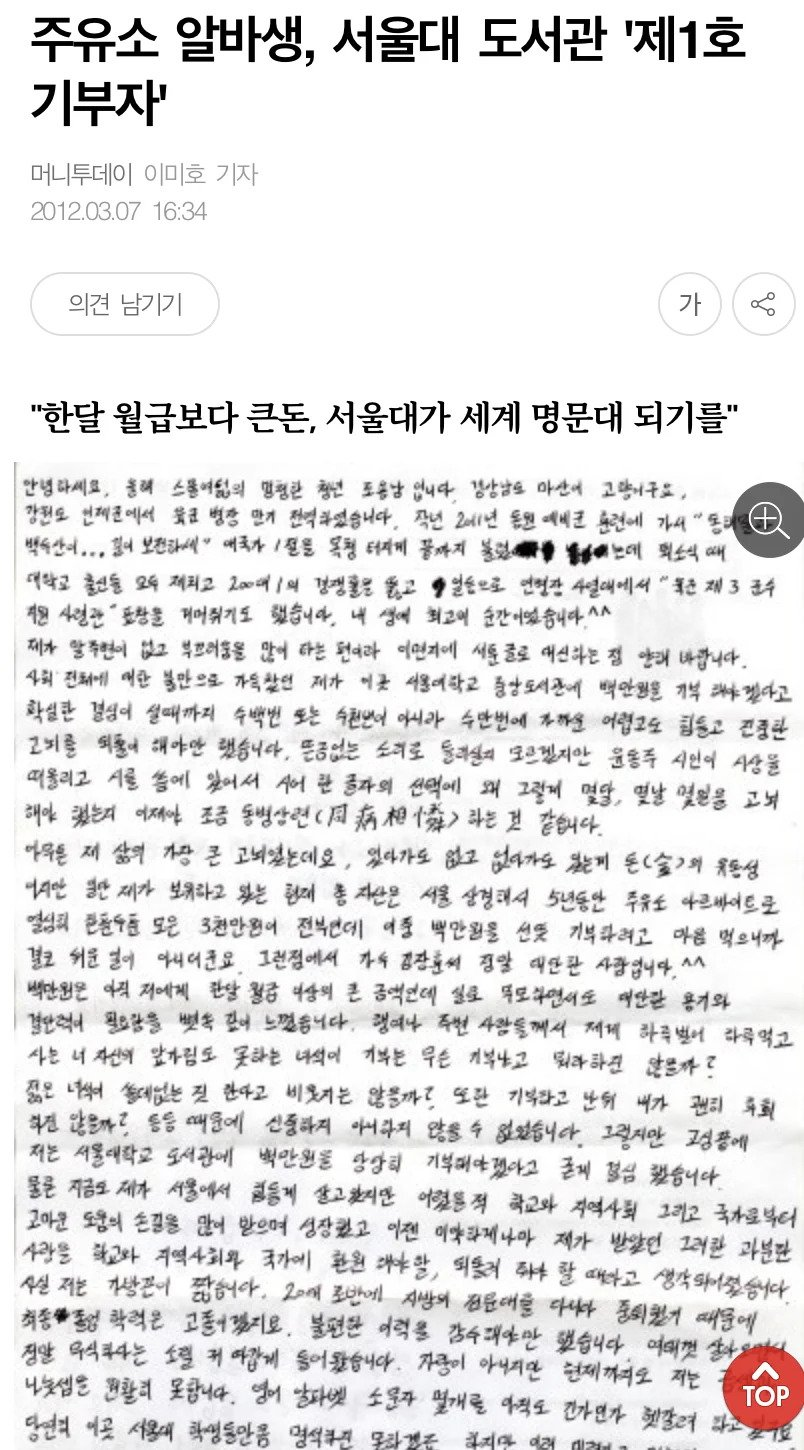 주유소 알바생, 서울대 도서관 '제1호
기부자'
머니투데이 이미호 기자
2012.03.07 16:34
의견 남기기
가
"한달 월급보다 큰돈, 서울대가 세계 명문대 되기를"
안녕하세요. 올해 스물여덟의 평범한 청년 도용남입니다. 경상남도 마산이 고향이구요.
강원도 인제군에서 육군 병장 만기 전역하였습니다. 작년 2011년 동원 예비군 훈련에 가서 "동해물과
백두산이... 길이 보전하세" 애국가 1절을 목청 터지게 끝까지 불렀 는데 퇴소식 때
대학교 출신들 모두 제치고 200대 1의 경쟁률을 뚫고 일등으로 연병장 사열대에서 "육군 제 3 군수
지원 사령관" 표창을 거머쥐기도 했습니다. 내 생애 최고의 순간이었습니다.^^
제가 말주변이 없고 부끄러움을 많이 타는 편이라 이면지에 서툰 글로 대신하는 점 양해 바랍니다.
사회 전체에 대한 불만으로 가득찼던 제가 이곳 서울대학교 중앙도서관에 백만원을 기부 해야겠다고
확실한 결심이 설때까지 수백번 또는 수천번이 아니라 수만번에 가까운 어렵고도 힘들고 진중한
고뇌를 되풀이 해야만 했습니다. 뜬금없는 소리로 들리실지 모르겠지만 윤동주 시인이 시상을
떠올리고 시를 씀에 있어서 시어 한 글자의 선택에 왜 그렇게 몇달, 몇날 몇일을 고뇌
해야 했는지 이제야 조금 동병상련(同病相憐)하는 것 같습니다.
아무튼 제 삶의 가장 큰 고뇌였는데요, 있다가도 없고 없다가도 있는게 돈(金)의 유동성
이지만 일단 제가 보유하고 있는 현재 총 자산은 서울 상경해서 5년동안 주유소 아르바이트로
열심히 한푼두푼 모은 3천만원이 전부인데 이중 백만원을 선뜻 기부하려고 마음 먹으니까
결코 쉬운 일이 아니더군요. 그런점에서 가수 김장훈씨 정말 대단한 사람입니다.^^
백만원은 아직 저에게 한달 월급 이상의 큰 금액인데 실로 무모하면서도 대단한 용기와
결단력이 필요함을 뼛속 깊이 느꼈습니다. 행여나 주변 사람들께서 제게 하루벌어 하루먹고
사는 너 자신의 앞가림도 못하는 녀석이 기부는 무슨 기부냐고 뭐라하진 않을까?
젊은 녀석이 쓸데없는 짓 한다고 비웃지는 않을까? 또한 기부하고 난뒤 내가 괜히 후회
하진 않을까? 등등 때문에 신중하지 아니하지 않을 수 없었습니다. 그렇지만 고심끝에
저는 서울대학교 도서관에 백만원을 당당히 기부해야겠다고 굳게 결심 했습니다.
물론 지금도 제가 서울에서 힘들게 살고있지만 어렸을적 학교와 지역사회 그리고 국가로부터
고마운 도움의 손길을 많이 받으며 성장했고 이젠 미약하게나마 제가 받았던 그러한 과분한
사랑을 학교와 지역사회와 국가에 환원 해야할, 되돌려 줘야 할 때라고 생각되어졌습니다.
사실 저는 가방끈이 짧습니다. 20대 초반에 지방의 전문대를 다니다 중퇴했기 때문에
최종 졸업 학력은 고졸이겠지요. 불편한 이력을 감수해야만 했습니다. 여태껏 살아오면서
정말 무식하다는 소릴 귀 따갑게 들어왔습니다. 자랑이 아니지만 현재까지도 저는
나눗셈을 원활히 못합니다. 영어 알파벳 소문자 몇개를 아직도 긴가민가 헷갈려 하고
당연히 이곳 서울대 학생들만큼 명석하진 못하겠죠. 하지만
TOP